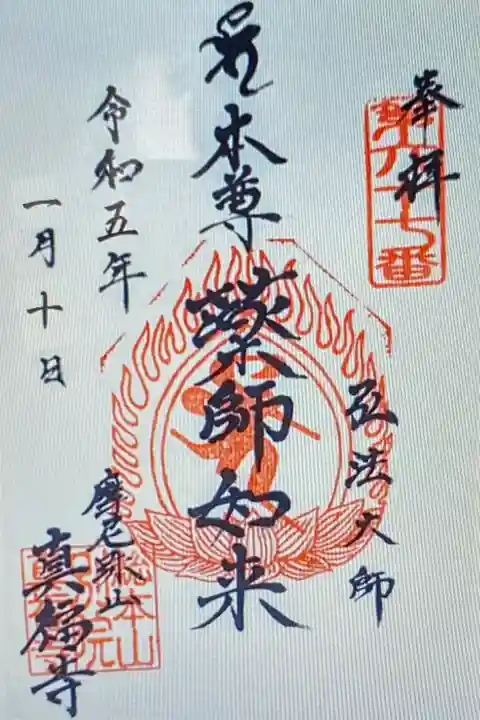 奉拝
第六十七番
弘法大師
本尊 薬師如来
令和五年
一月十日
摩尼珠山
真福寺